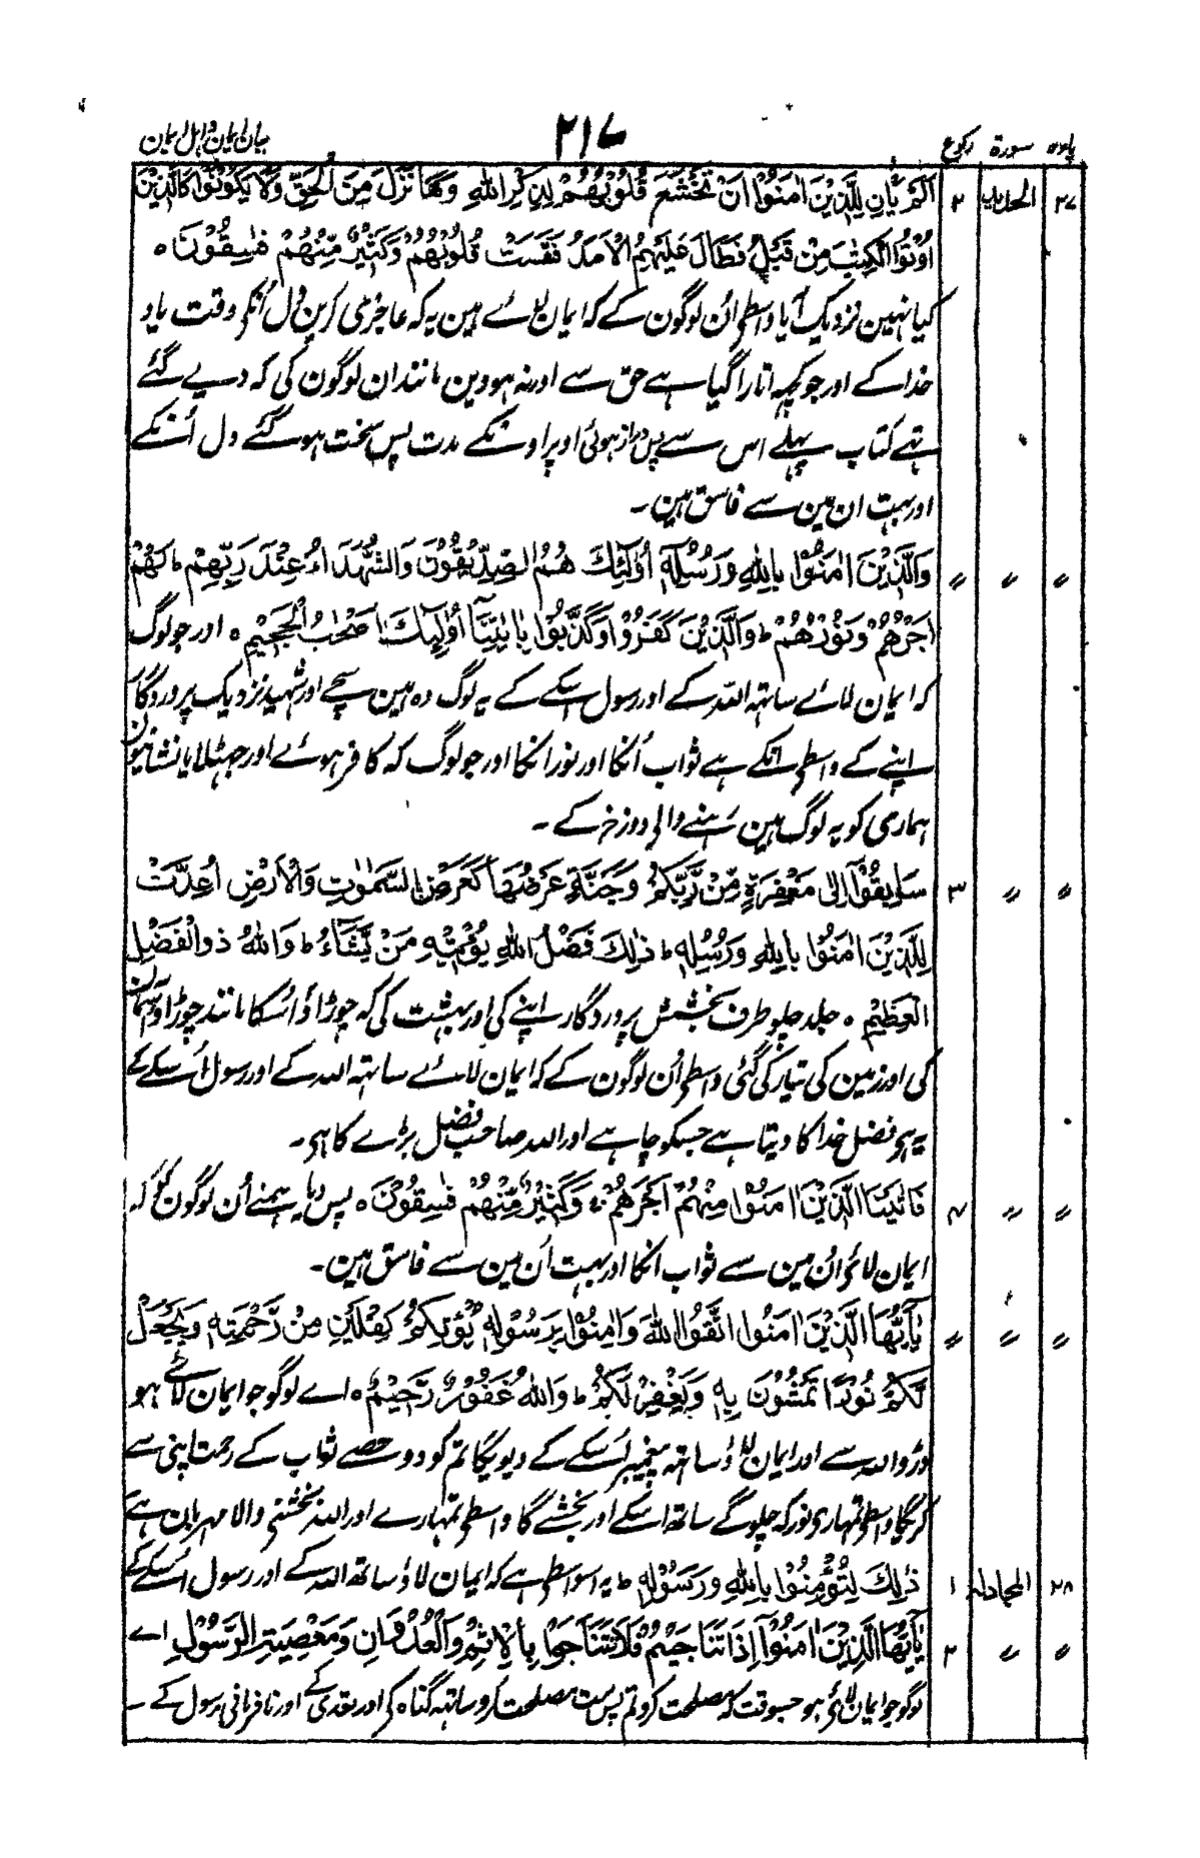 پارہ سورۃ رکوع ۲۱۷ بیان ایمان و اہل ایمان
۲۷ الحدید ۲ اَلَمْ یَاْنِ لِلَّذِیْنَ اٰمَنُوْۤا اَنْ تَخْشَعَ قُلُوْبُهُمْ لِذِكْرِ اللّٰهِ وَمَا نَزَلَ مِنَ الْحَقِّ وَلَا یَكُوْنُوْا كَالَّذِیْنَ
اُوْتُوا الْكِتٰبَ مِنْ قَبْلُ فَطَالَ عَلَیْهِمُ الْاَمَدُ فَقَسَتْ قُلُوْبُهُمْ وَكَثِیْرٌ مِّنْهُمْ فٰسِقُوْنَ ہ
کیا نہین نزدیک آیا واسطے اُن لوگون کے کہ ایمان لائے ہین یہ کہ عاجزی کرین دل اُنکے وقت یاد
خدا کے اور جو کچہہ اتارا گیا ہے حق سے اور نہ ہووین مانند ان لوگون کی کہ دیے گئے
تہے کتاب پہلے اس سے پس دراز ہوئی اوپر اونکے مدت پس سخت ہو گئے دل اُنکے
اور بہت ان مین سے فاسق ہین۔
〃 〃 〃 وَالَّذِیْنَ اٰمَنُوْا بِاللّٰهِ وَرُسُلِهٖۤ اُولٰٓئِكَ هُمُ الصِّدِّیْقُوْنَ وَالشُّهَدَآءُ عِنْدَ رَبِّهِمْ ؕ لَهُمْ
اَجْرُهُمْ وَنُوْرُهُمْ ؕ وَالَّذِیْنَ كَفَرُوْا وَكَذَّبُوْا بِاٰیٰتِنَاۤ اُولٰٓئِكَ اَصْحٰبُ الْجَحِیْمِ ہ اور جو لوگ
کہ ایمان لائے ساتہہ اللہ کے اور رسول اسکے کے یہ لوگ وہ ہین سچے اور شہید نزدیک پروردگار
اپنے کے واسطے انکے ہے ثواب اُنکا اور نور انکا اور جو لوگ کہ کافر ہوئے اور جہٹلایا نشانیون
ہماری کو یہ لوگ ہین رہنے والے دوزخ کے۔
〃 〃 ۳ سَابِقُوْۤا اِلٰی مَغْفِرَةٍ مِّنْ رَّبِّكُمْ وَجَنَّةٍ عَرْضُهَا كَعَرْضِ السَّمٰوٰتِ وَالْاَرْضِ اُعِدَّتْ
لِلَّذِیْنَ اٰمَنُوْا بِاللّٰهِ وَرُسُلِهٖ ؕ ذٰلِكَ فَضْلُ اللّٰهِ یُؤْتِیْهِ مَنْ یَّشَآءُ ؕ وَاللّٰهُ ذُوالْفَضْلِ
الْعَظِیْمِ ہ جلد چلو طرف بخشش پروردگار اپنے کی اور بہشت کی کہ چوڑاؤ اُسکا مانند چوڑاؤ آسمان
کی اور زمین کی تیار کی گئی واسطے اُن لوگون کے کہ ایمان لائے ساتہہ اللہ کے اور رسول اُسکے کے
یہ ہے فضل خدا کا دیتا ہے جسکو چاہے اور اللہ صاحب فضل بڑے کا ہی۔
〃 〃 ۴ فَاٰتَیْنَا الَّذِیْنَ اٰمَنُوْا مِنْهُمْ اَجْرَهُمْ ۚ وَكَثِیْرٌ مِّنْهُمْ فٰسِقُوْنَ ہ پس دیا ہمنے اُن لوگون کو کہ
ایمان لائے اُن مین سے ثواب انکا اور بہت اُن مین سے فاسق ہین۔
〃 〃 〃 یٰۤاَیُّهَا الَّذِیْنَ اٰمَنُوا اتَّقُوا اللّٰهَ وَاٰمِنُوْا بِرَسُوْلِهٖ یُؤْتِكُمْ كِفْلَیْنِ مِنْ رَّحْمَتِهٖ وَیَجْعَلْ
لَّكُمْ نُوْرًا تَمْشُوْنَ بِهٖ وَیَغْفِرْ لَكُمْ ؕ وَاللّٰهُ غَفُوْرٌ رَّحِیْمٌ ہ اے لوگو جو ایمان لائے ہو
ڈرو اللہ سے اور ایمان لاؤ ساتہہ پیغمبر اُسکے کے دیویگا تم کو دو حصے ثواب کے رحمت اپنی سے
کریگا واسطے تمہاری نور کہ چلو گے ساتھ اسکے اور بخشے گا واسطے تمہارے اور اللہ بخشنے والا مہربان ہے
۲۸ المجادلہ ۱ ذٰلِكَ لِتُؤْمِنُوْا بِاللّٰهِ وَرَسُوْلِهٖ ؕ یہ اسواسطے ہے کہ ایمان لاؤ ساتھ اللہ کے اور رسول اُسکے کے
〃 〃 ۲ یٰۤاَیُّهَا الَّذِیْنَ اٰمَنُوْۤا اِذَا تَنَاجَیْتُمْ فَلَا تَتَنَاجَوْا بِالْاِثْمِ وَالْعُدْوَانِ وَمَعْصِیَتِ الرَّسُوْلِ اے
لوگو جو ایمان لائے ہو جسوقت کہ مصلحت کرو تم پس مت مصلحت کرو ساتہہ گناہ کے اور تعدی کے اور نافرمانی رسول کے۔